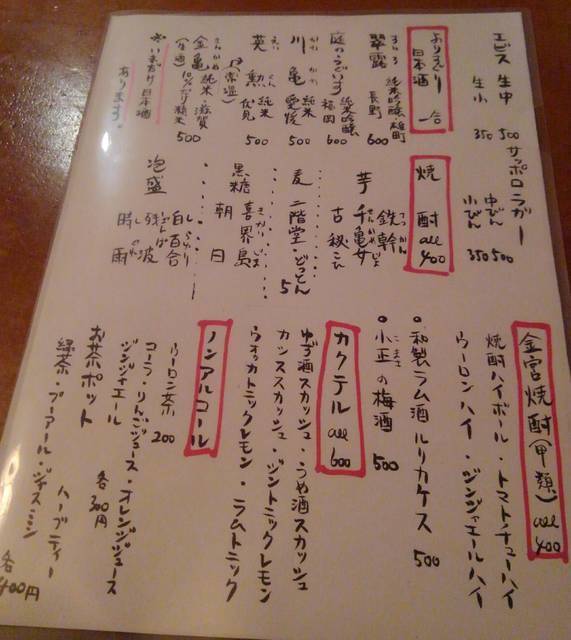 エビス 生中 500
生小 350
サッポロラガー
中びん 500
小びん 350
よりどり日本酒 一合
翠露 純米吟醸・雄町 長野 600
庭のうぐいす 純米吟醸 福岡 600
川亀 純米 愛媛 500
英勲 純米 伏見 500
(常温)
金亀 純米・滋賀 500
あります。
焼酎 all 400
芋 鉄幹
千亀女
古秘
麦 二階堂・どっとん
黒糖 喜界島
朝日
泡盛 白百合
残波
時雨
金宮焼酎(甲類) all 400
焼酎ハイボール・トマトチューハイ
ウーロンハイ・ジンジャエールハイ
和製ラム酒 ルリカケス 500
小正の梅酒 500
カクテル all 600
ゆず酒スカッシュ・うめ酒スカッシュ
カシススカッシュ・ジントニックレモン
ウォッカトニックレモン・ラムトニック
ノンアルコール
ウーロン茶 200
コーラ・りんごジュース・オレンジジュース
ジンジャエール 各300円
お茶ポット ハーブティー
緑茶・プーアール・ジャスミン 各400円